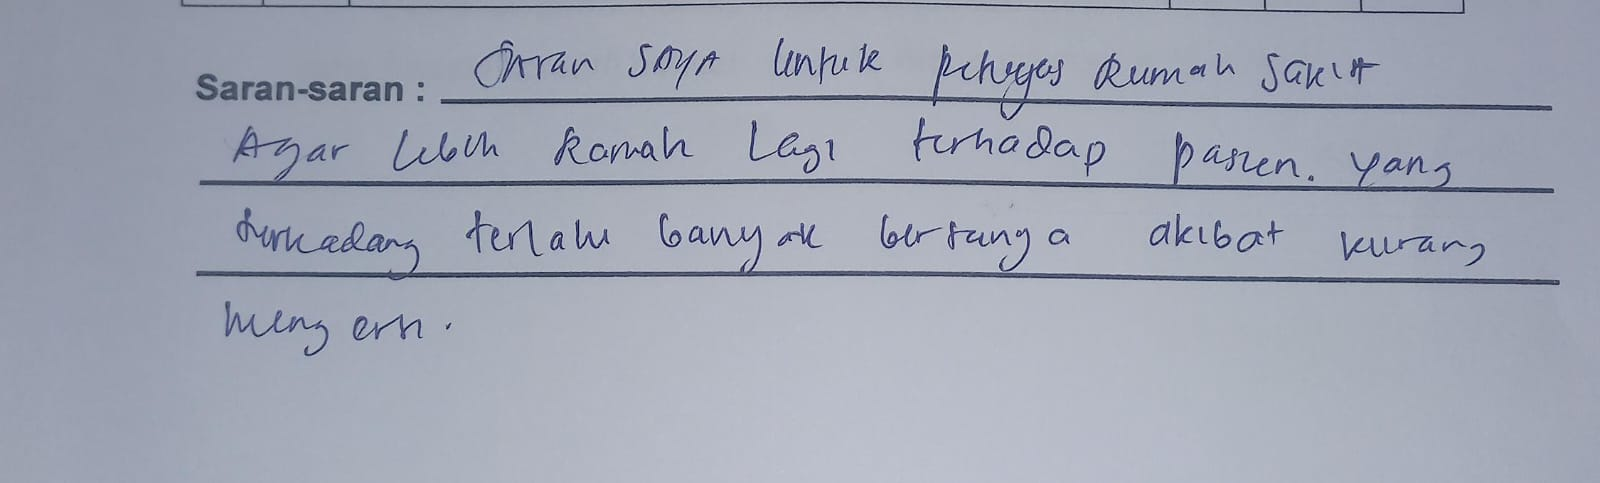 Saran-saran : Saran SAYA untuk petugas Rumah Sakit
Agar lebih Ramah Lagi terhadap pasien. yang
terkadang terlalu banyak bertanya akibat kurang
mengerti.